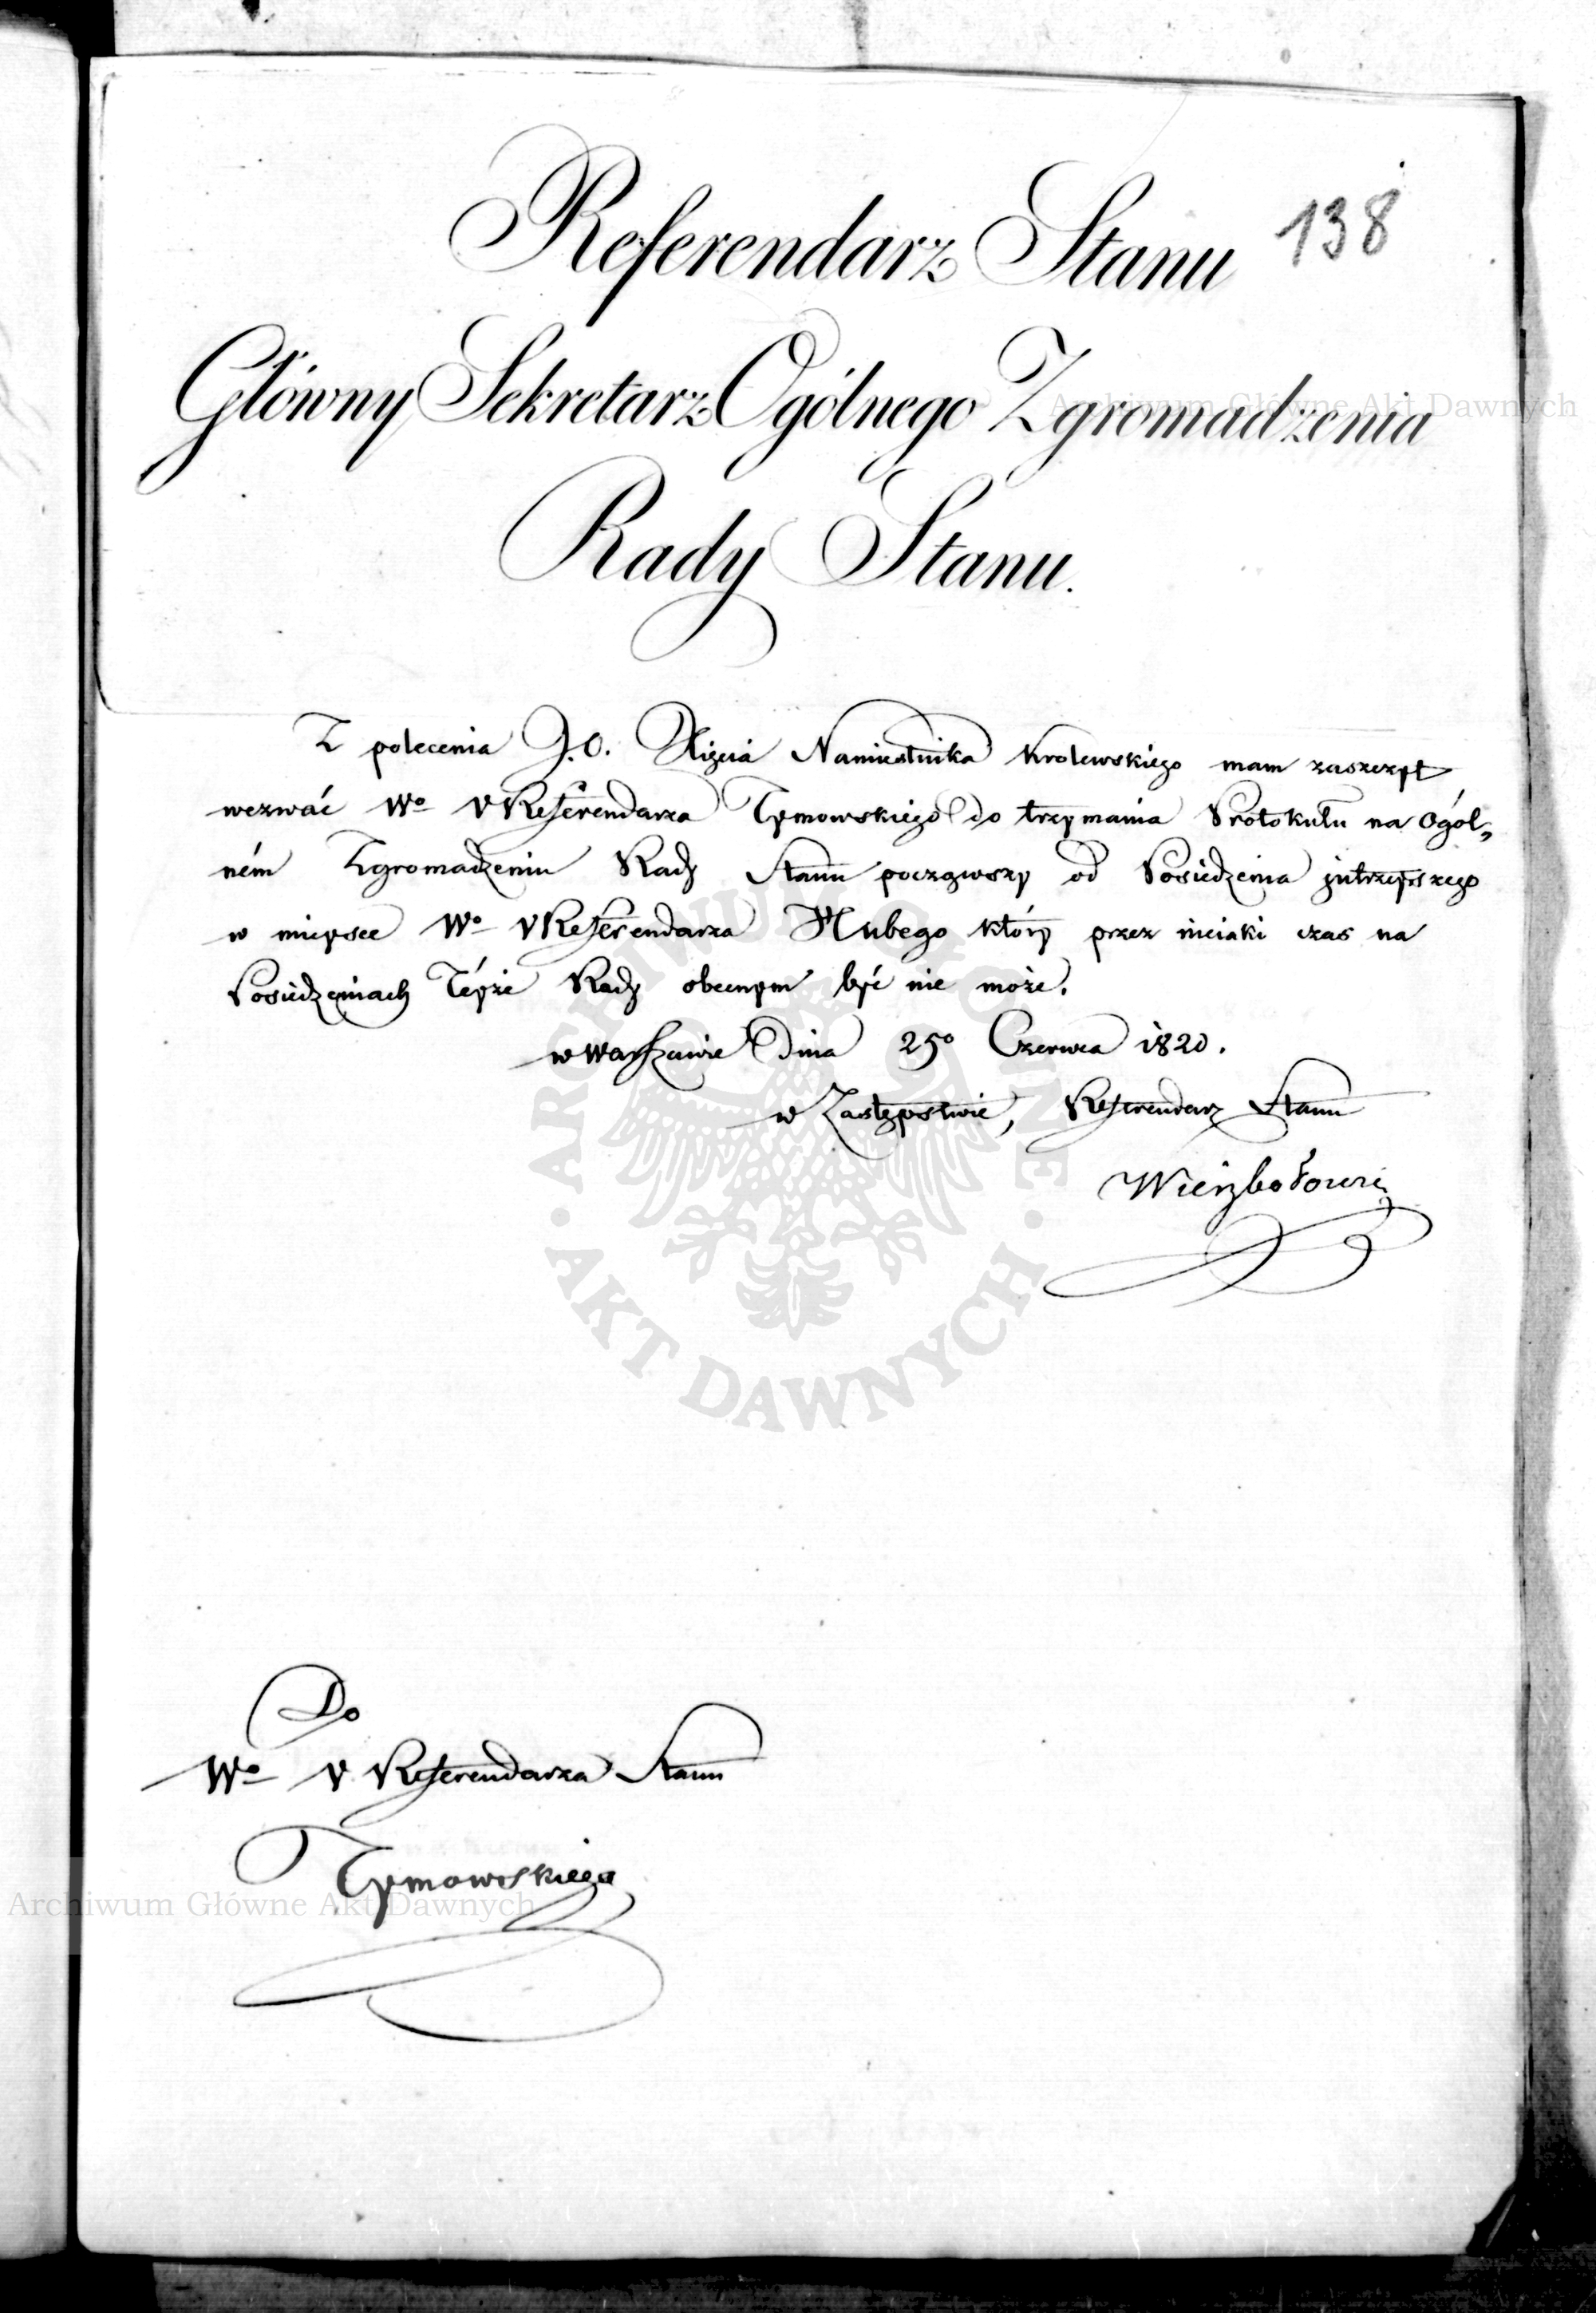 138
Referendarz Stanu
Główny Sekretarz Ogólnego Zgromadzenia
Rady Stanu.
Z polecenia J.O. Xięcia Namiestnika Krolewskiego mam zaszczyt
wezwać Wo V Referendarza Tymowskiego do trzymania Protokułu na Ogól„
ném Zgromadzeniu Rady Stanu począwszy od Posiedzenia jutrzeyszego
w mieysce Wo V Referendarza Hubego który przez nieiaki czas na
Posiedzeniach Téyże Rady obecnym być nie może.
w Warszawie Dnia 25o Czerwca 1820.
w Zastępstwie, Referendarz Stanu
Wierzbołowicz
Do
Wo V Referendarza Stanu
Tymowskiego
Archiwum Główne Akt Dawnych
ARCHIWUM GŁÓWNE · AKT DAWNYCH ·
Archiwum Główne Akt Dawnych